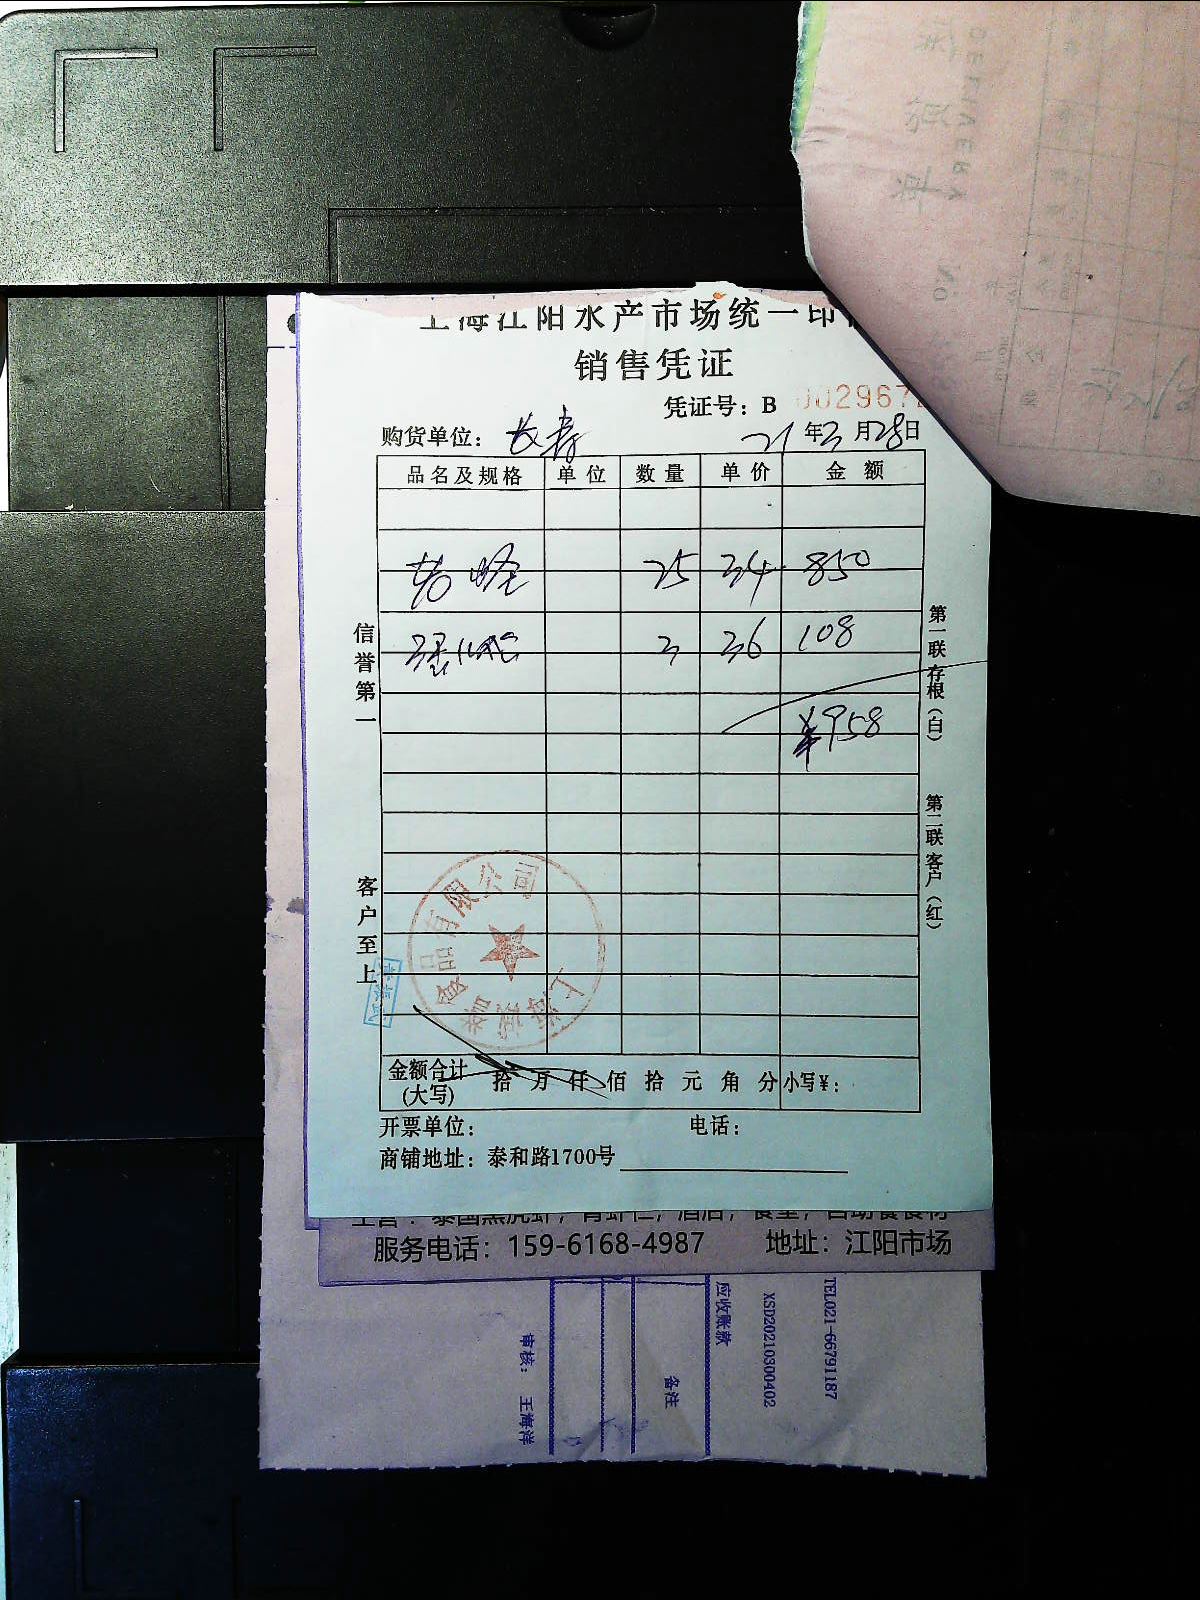 上海江阳水产市场统一印
销售凭证
凭证号：B 002967
购货单位：长寿 21年3月28日
品名及规格 单位 数量 单价 金额
25 34 850
3 36 108
¥958
信誉第一
客户至上
第一联存根（白）
第二联客户（红）
上海诚誉食品有限公司
金额合计(大写) 拾 万 仟 佰 拾 元 角 分 小写¥：
开票单位： 电话：
商铺地址：泰和路1700号
主营：泰国黑虎虾，青虾仁，酒店，食堂，自助餐食材
服务电话：159-6168-4987 地址：江阳市场
TEL021-66791187
XSD20210300402
应收账款
备注
审核： 王海洋